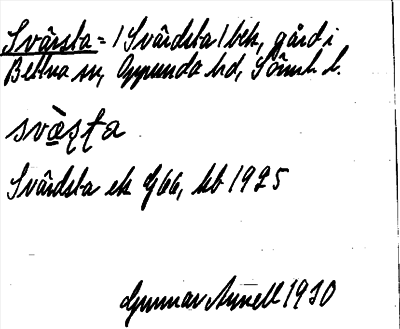 Svärsta = / Svärdsta / bek, gård i
Bettna sn, Oppunda hd, Sörml. l.
svä̀ʂʈa
Svärdsta ek G66, kb 1925
Gunnar Arnell 1930